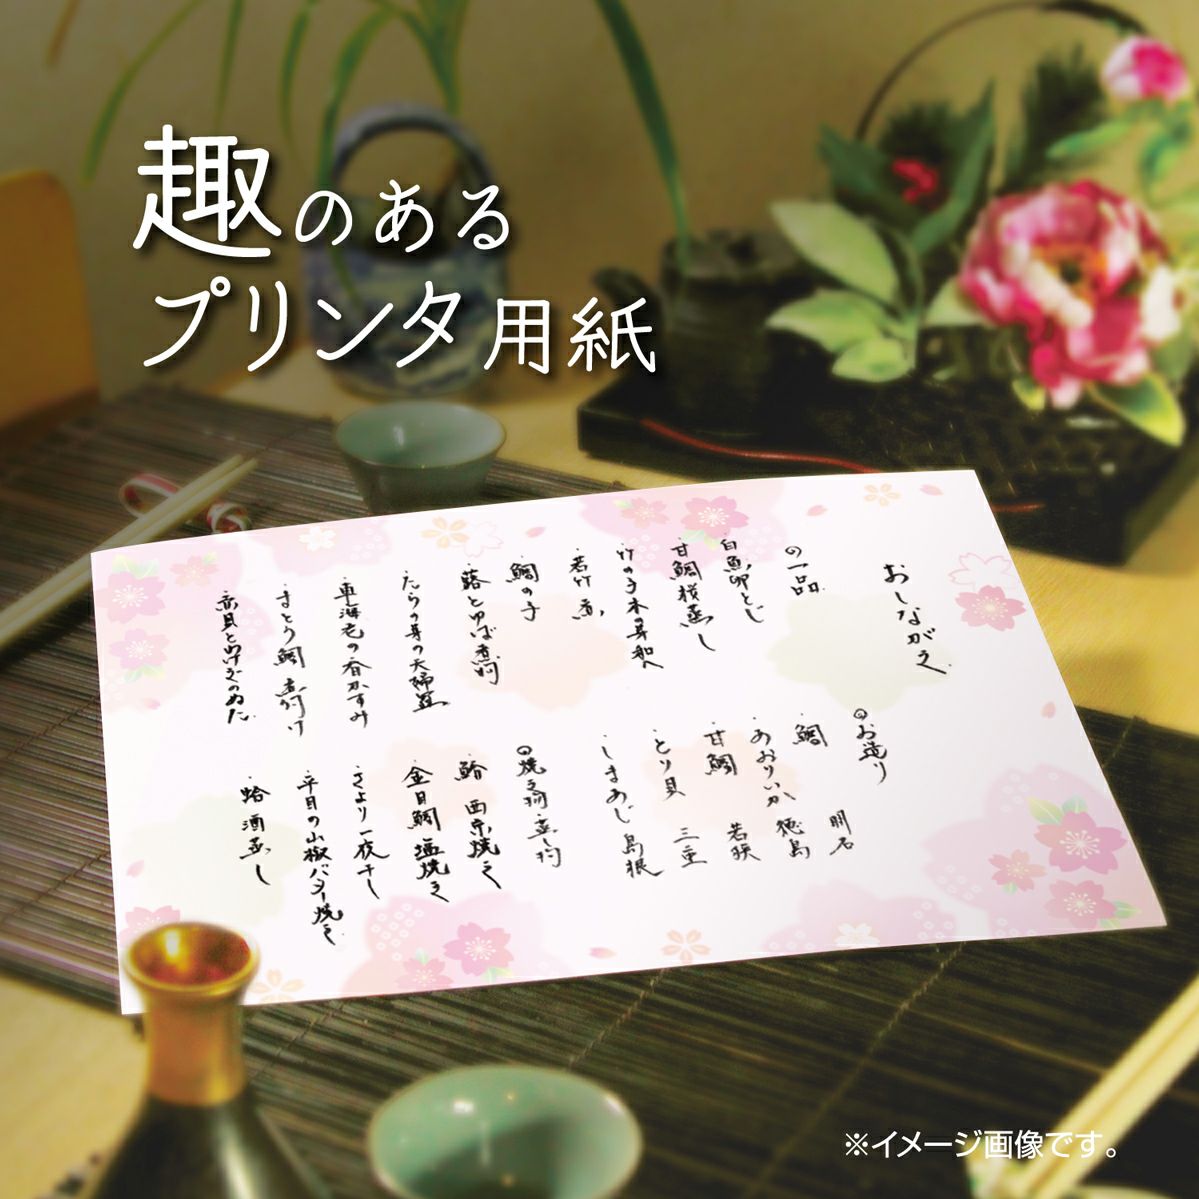 趣のある
プリンタ用紙
おしながき
の一品
白魚卵とじ
甘鯛桜蒸し
竹の子木の芽和へ
若竹煮
鯛の子
蕗とゆば煮物
たらの芽の天婦羅
車海老の香かすみ
まとう鯛 煮付け
赤貝とわけぎのぬた
のお造り
鯛 明石
あおりいか 徳島
甘鯛 若狭
とり貝 三重
しまあじ 島根
の焼き物蒸し物
鮨 西京焼き
金目鯛 塩焼き
さより一夜干し
平目の山椒バター焼き
蛤酒蒸し
※イメージ画像です。